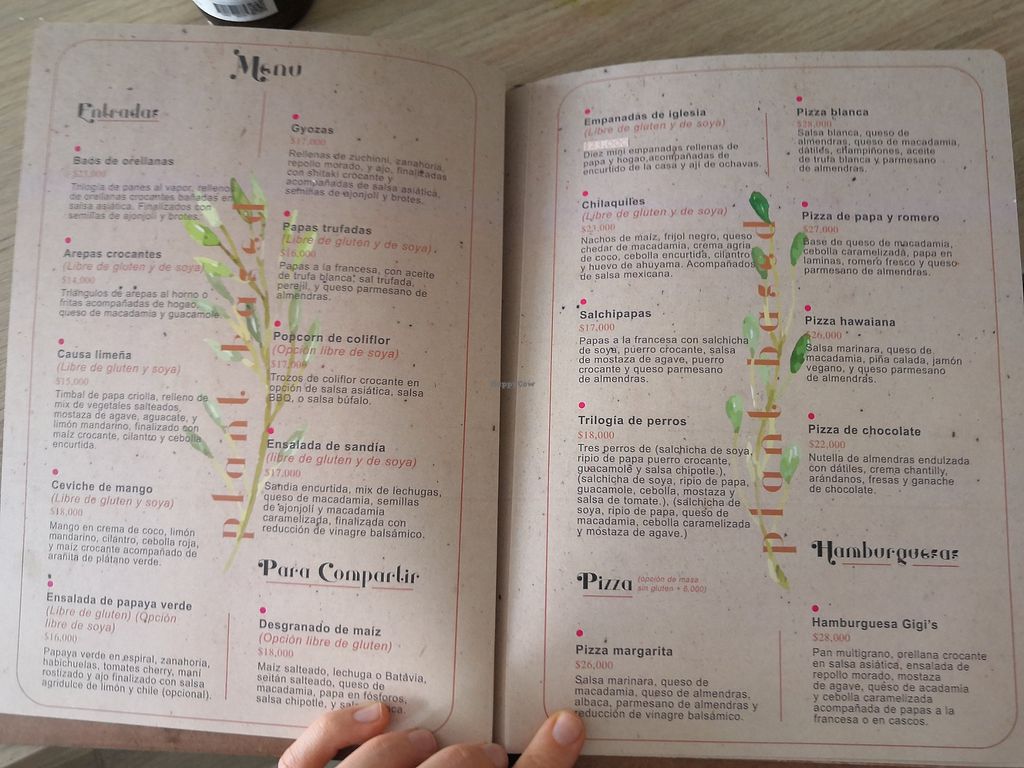 Menu
Entradas
Baos de orellanas
$23,000
Trilogía de panes al vapor, rellenos
de orellanas crocantes bañadas en
salsa asiática. Finalizados con
semillas de ajonjolí y brotes.
Arepas crocantes
(Libre de gluten y de soya)
$14,000
Triángulos de arepas al horno o
fritas acompañadas de hogao,
queso de macadamia y guacamole.
Causa limeña
(Libre de gluten y soya)
$15,000
Timbal de papa criolla, relleno de
mix de vegetales salteados,
mostaza de agave, aguacate, y
limón mandarino, finalizado con
maíz crocante, cilantro y cebolla
encurtida.
Ceviche de mango
(Libre de gluten y soya)
$18,000
Mango en crema de coco, limón
mandarino, cilantro, cebolla roja,
y maíz crocante acompañado de
arañita de plátano verde.
Ensalada de papaya verde
(Libre de gluten) (Opción
libre de soya)
$16,000
Papaya verde en espiral, zanahoria,
habichuelas, tomates cherry, maní
rostizado y ajo finalizado con salsa
agridulce de limón y chile (opcional).
Gyozas
$17,000
Rellenas de zuchinni, zanahoria,
repollo morado, y ajo, finalizadas
con shitaki crocante y
acompañadas de salsa asiática,
semillas de ajonjolí y brotes.
Papas trufadas
(Libre de gluten y de soya)
$16,000
Papas a la francesa, con aceite
de trufa blanca, sal trufada,
perejil, y queso parmesano de
almendras.
Popcorn de coliflor
(Opción libre de soya)
$17,000
Trozos de coliflor crocante en
opción de salsa asiática, salsa
BBQ, o salsa búfalo.
Ensalada de sandía
(libre de gluten y de soya)
$17,000
Sandia encurtida, mix de lechugas,
queso de macadamia, semillas
de ajonjolí y macadamia
caramelizada, finalizada con
reducción de vinagre balsámico.
Para Compartir
Desgranado de maíz
(Opción libre de gluten)
$18,000
Maíz salteado, lechuga o Batavia,
seitán salteado, queso de
macadamia, papa en fósforos,
salsa chipotle, y
plant based
Empanadas de iglesia
(Libre de gluten y de soya)
$23,000
Diez mini empanadas rellenas de
papa y hogao,acompañadas de
encurtido de la casa y ají de ochavas.
Chilaquiles
(Libre de gluten y de soya)
$23,000
Nachos de maíz, frijol negro, queso
chedar de macadamia, crema agria
de coco, cebolla encurtida, cilantro
y huevo de ahuyama. Acompañados
de salsa mexicana.
Salchipapas
$17,000
Papas a la francesa con salchicha
de soya, puerro crocante, salsa
de mostaza de agave, puerro
crocante y queso parmesano
de almendras.
Trilogía de perros
$18,000
Tres perros de (salchicha de soya,
ripio de papa puerro crocante,
guacamole y salsa chipotle.),
(salchicha de soya, ripio de papa,
guacamole, cebolla, mostaza y
salsa de tomate.), (salchicha de
soya, ripio de papa, queso de
macadamia, cebolla caramelizada
y mostaza de agave.)
Pizza (opción de masa
sin gluten + 6,000)
Pizza margarita
$26,000
Salsa marinara, queso de
macadamia, queso de almendras,
albaca, parmesano de almendras y
reducción de vinagre balsámico.
Pizza blanca
$28,000
Salsa blanca, queso de
almendras, queso de macadamia,
dátiles, champiñones, aceite
de trufa blanca y parmesano
de almendras.
Pizza de papa y romero
$27,000
Base de queso de macadamia,
cebolla caramelizada, papa en
laminas, romero fresco y queso
parmesano de almendras.
Pizza hawaiana
$26,000
Salsa marinara, queso de
macadamia, piña calada, jamón
vegano, y queso parmesano
de almendras.
Pizza de chocolate
$22,000
Nutella de almendras endulzada
con dátiles, crema chantilly,
arándanos, fresas y ganache
de chocolate.
Hamburguesas
Hamburguesa Gigi's
$28,000
Pan multigrano, orellana crocante
en salsa asiática, ensalada de
repollo morado, mostaza
de agave, quéso de acadamia
y cebolla caramelizada
acompañada de papas a la
francesa o en cascos.
plant based
HappyCow